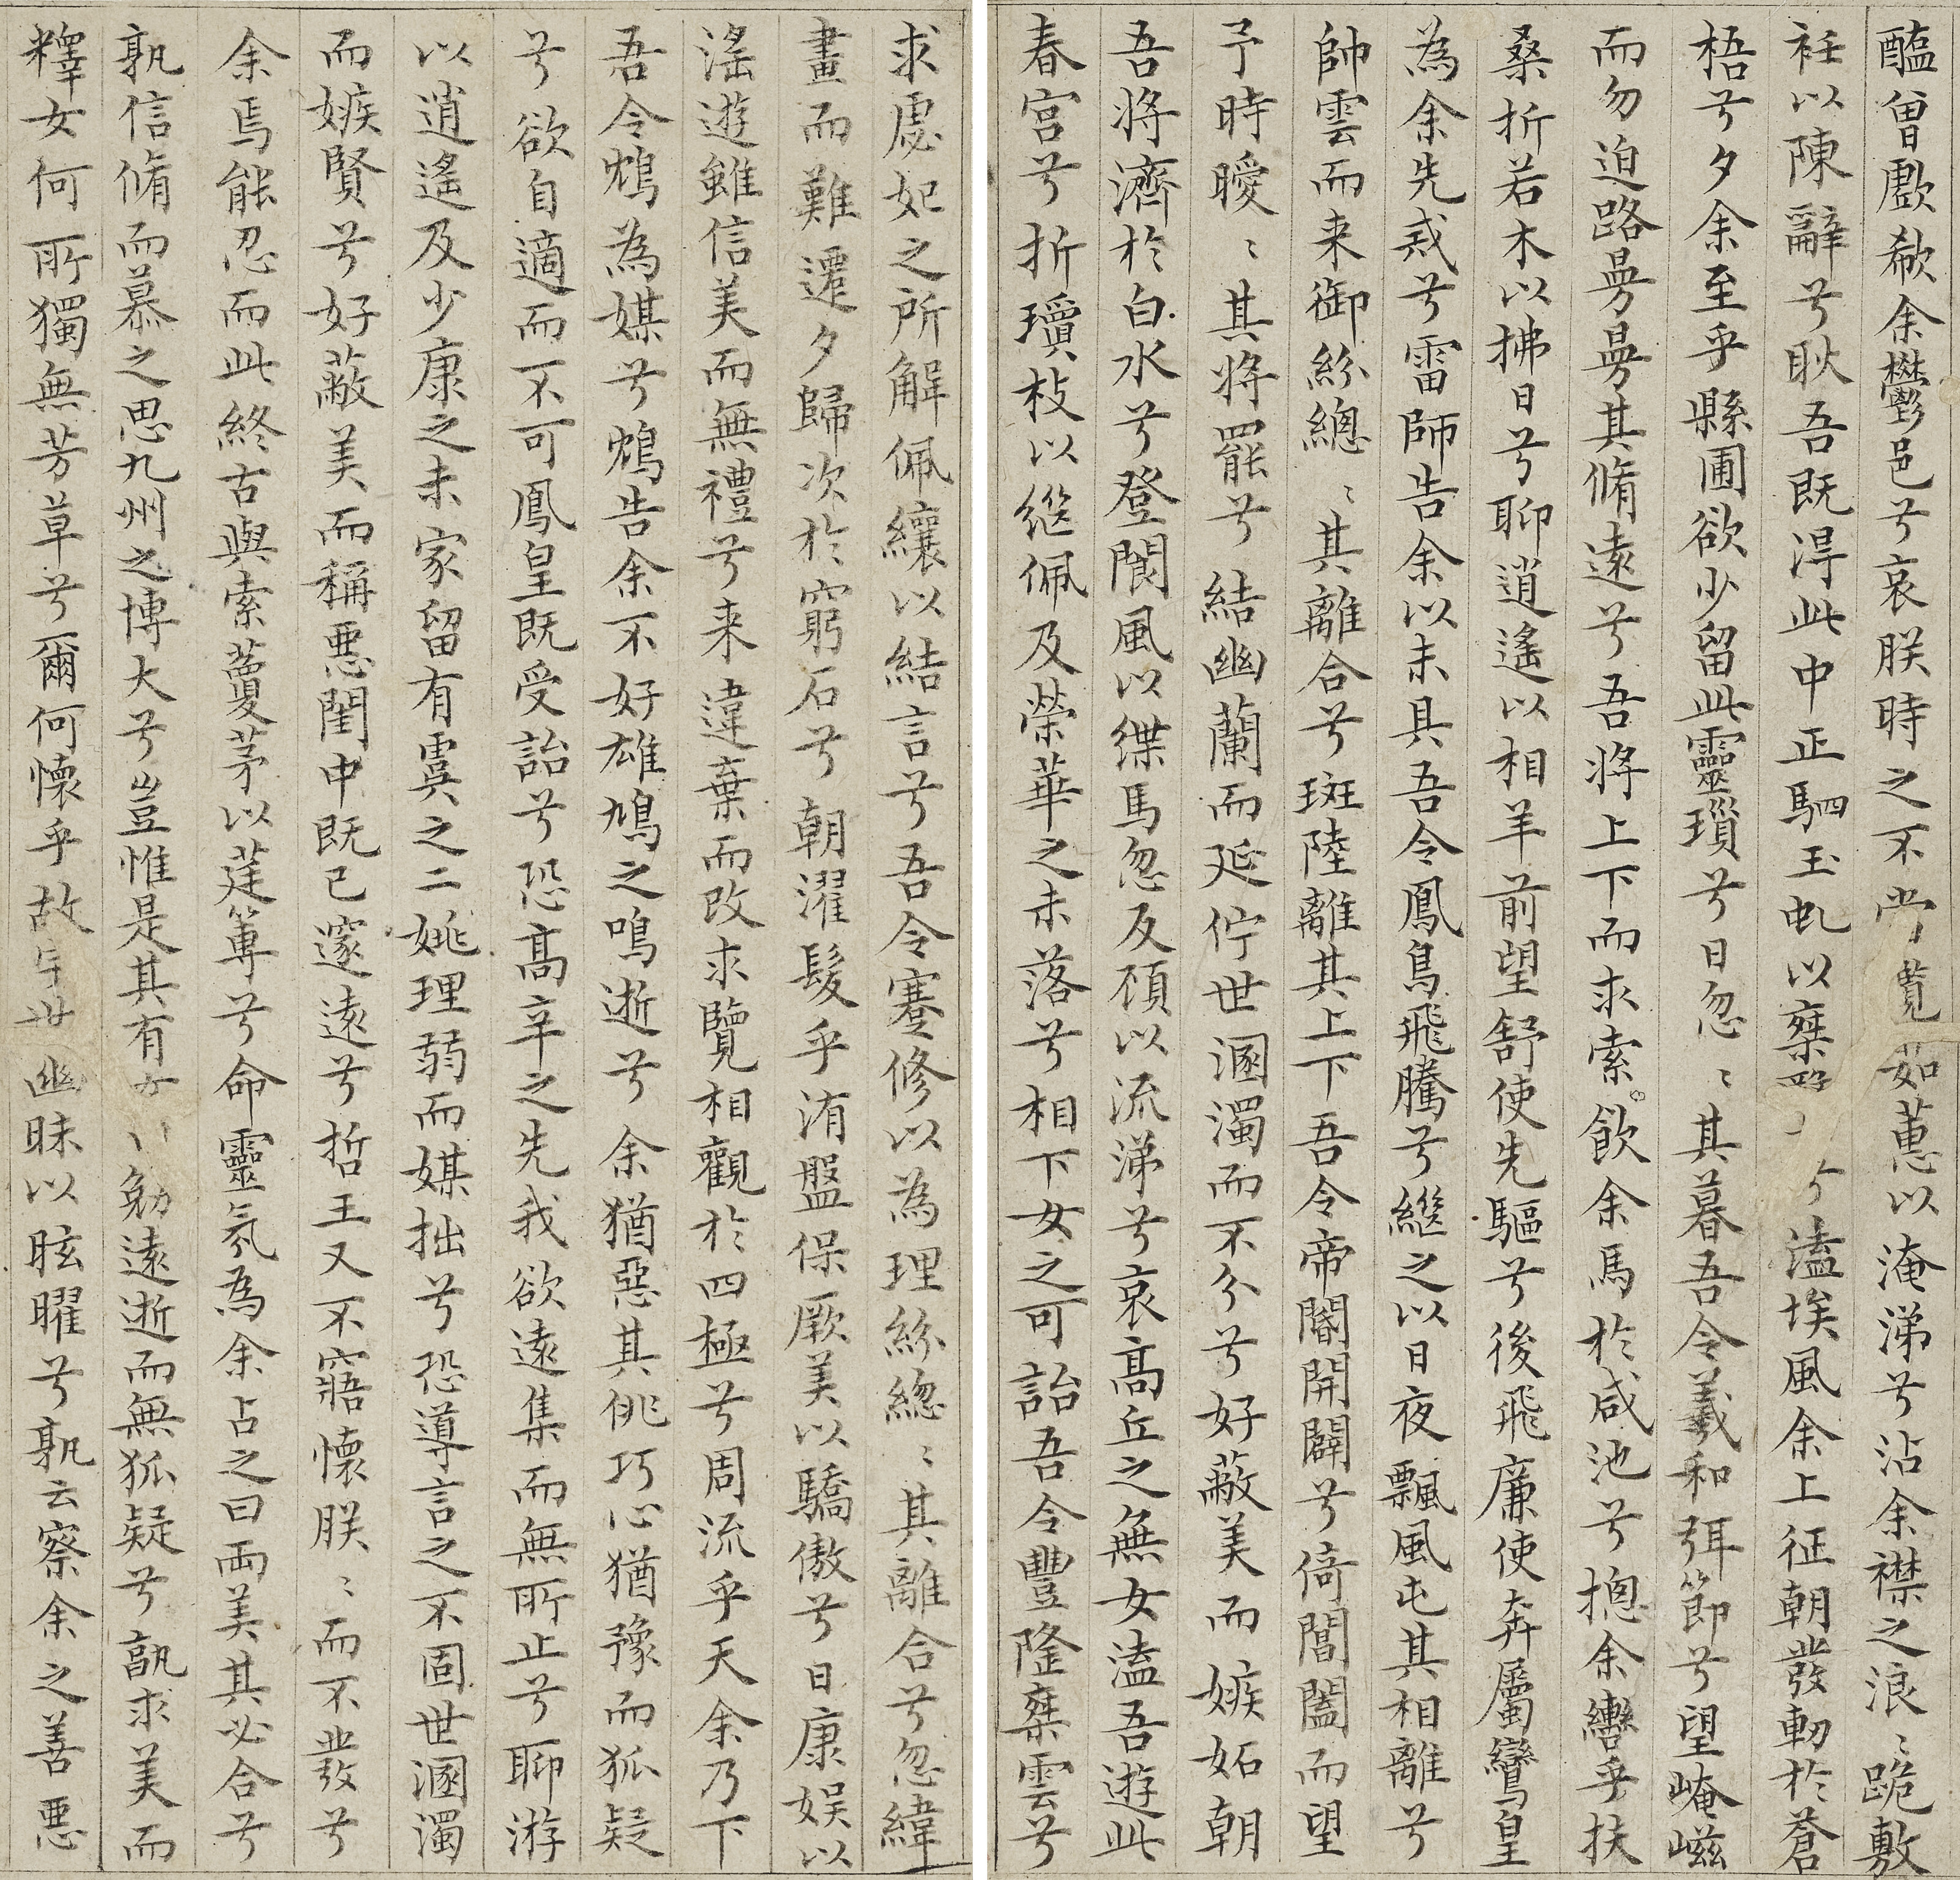 醖曾歔欷余鬱邑兮哀朕時之不當覽茹蕙以淹涕兮沾余襟之浪〻跪敷
衽以陳辭兮耿吾既得此中正駟玉虬以椉鷖兮溘埃風余上征朝發軔於蒼
梧兮夕余至乎縣圃欲少留此靈瑣兮日忽〻其暮吾令羲和弭節兮望崦嵫
而勿迫路曼曼其脩遠兮吾將上下而求索飲余馬於咸池兮摠余轡乎扶
桑折若木以拂日兮聊逍遙以相羊前望舒使先驅兮後飛廉使奔屬鸞皇
為余先戒兮雷師告余以未具吾令鳳鳥飛騰兮繼之以日夜飄風屯其相離兮
帥雲而来御紛總〻其離合兮斑陸離其上下吾令帝閽開闢兮倚閶闔而望
予時曖〻其將罷兮結幽蘭而延佇世溷濁而不分兮好蔽美而嫉妬朝
吾將濟於白水兮登閬風以緤馬忽反顧以流涕兮哀高丘之無女溘吾遊此
春宮兮折瓊枝以継佩及榮華之未落兮相下女之可詒吾令豐隆椉雲兮
求處妃之所解佩纕以結言兮吾令蹇修以為理紛總〻其離合兮忽緯
畫而難遷夕歸次於窮石兮朝濯髮乎洧盤保厥美以驕傲兮日康娱以
滛遊雖信美而無禮兮来違棄而改求覽相觀於四極兮周流乎天余乃下
吾令鴆為媒兮鴆告余不好雄鳩之鳴逝兮余猶惡其佻巧心猶豫而狐疑
兮欲自適而不可鳳皇既受詒兮恐高辛之先我欲遠集而無所止兮聊游
以逍遙及少康之未家留有虞之二姚理弱而媒拙兮恐導言之不固世溷濁
而嫉賢兮好蔽美而稱悪閨中既已邃遠兮哲王又不寤懷朕〻而不發兮
余焉能忍而此終古與索藑茅以莛篿兮命靈氛為余占之曰兩美其必合兮
孰信脩而慕之思九州之博大兮豈惟是其有女勉遠逝而無狐疑兮孰求美而
釋女何所獨無芳草兮爾何懷乎故宇世幽昧以眩曜兮孰云察余之善悪